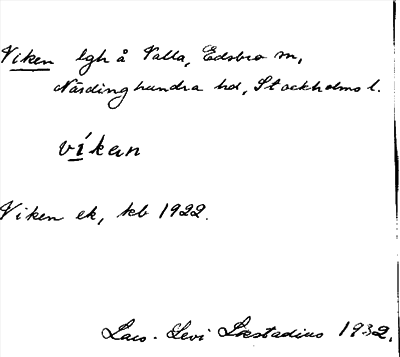 Viken lgh å Valla, Edsbro sn,
Närdinghundra hd, Stockholms l.
víkan
Viken ek, kb 1922.
Lars-Levi Læstadius 1932.